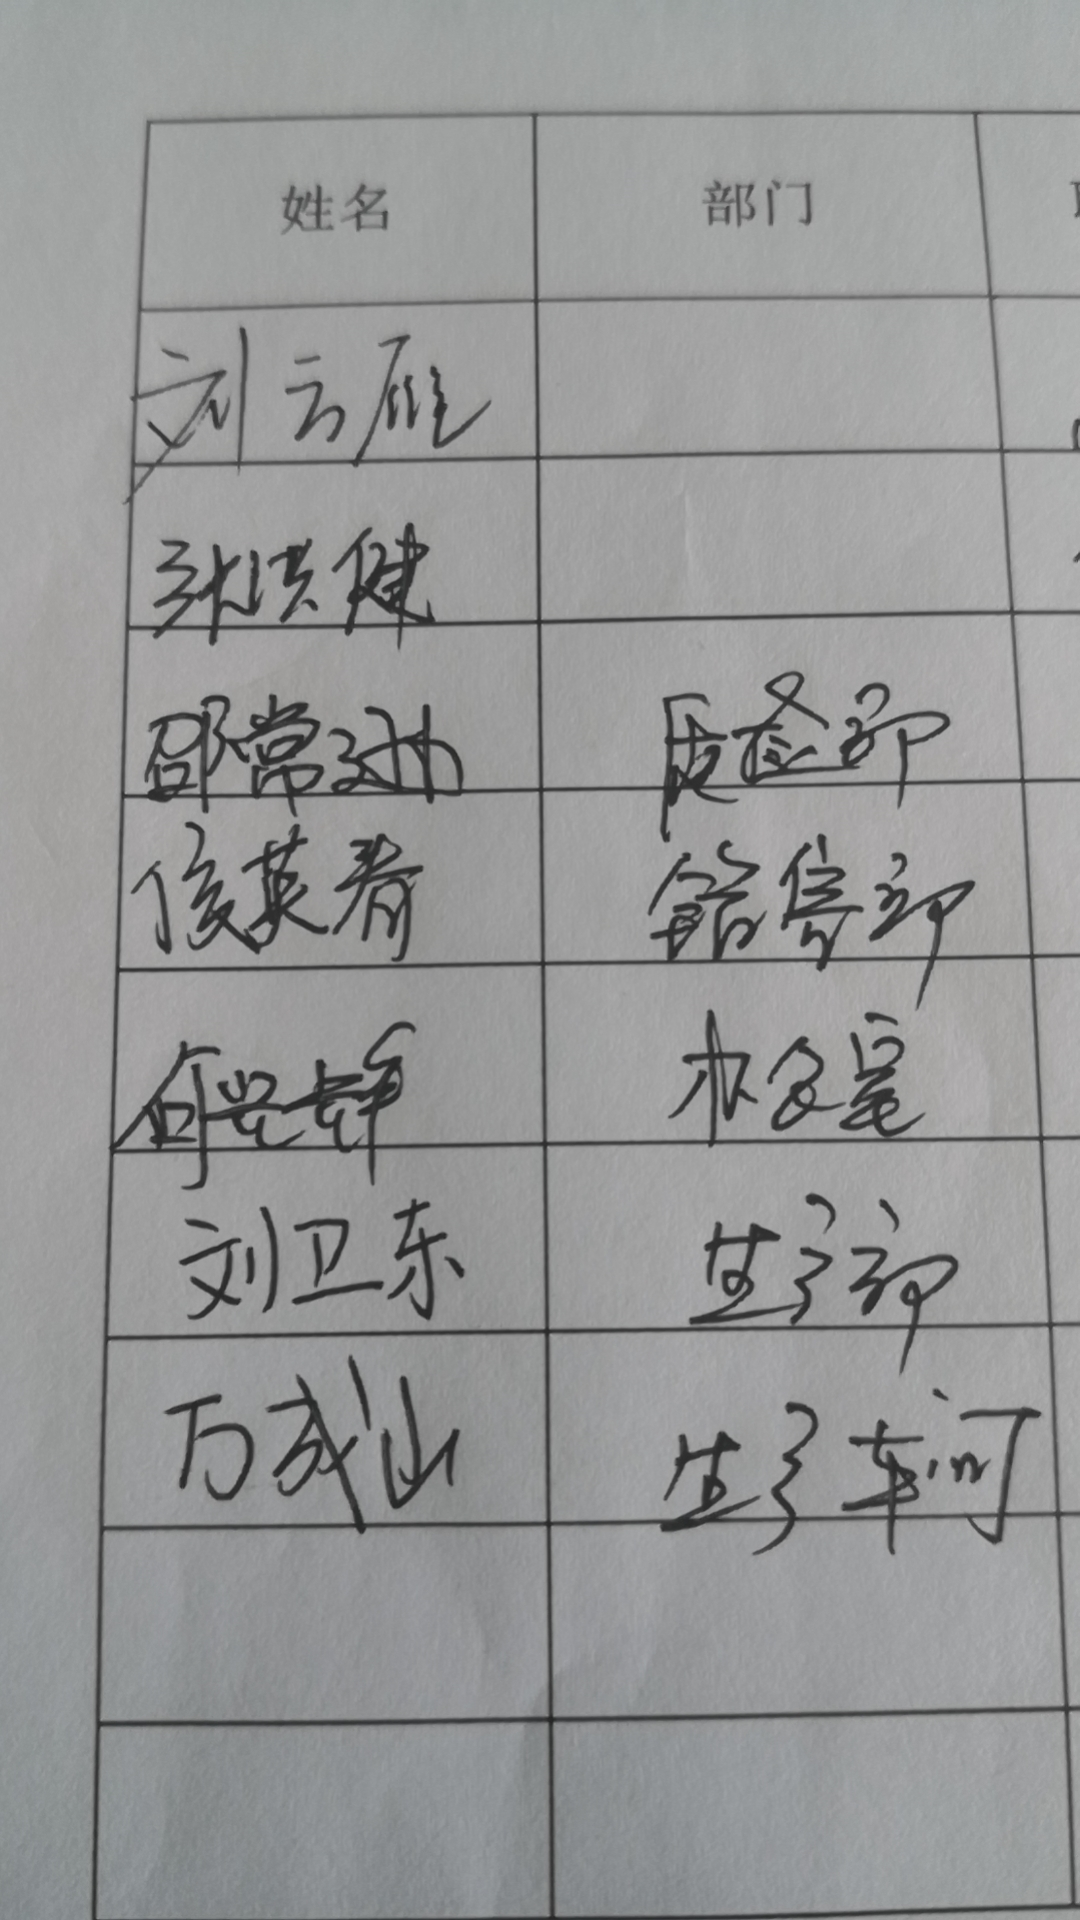 姓名 部门
刘云雁
张洪健
邵常 质检部
侯英春 销售部
何 办公室
刘卫东 生产部
万成山 生产车间